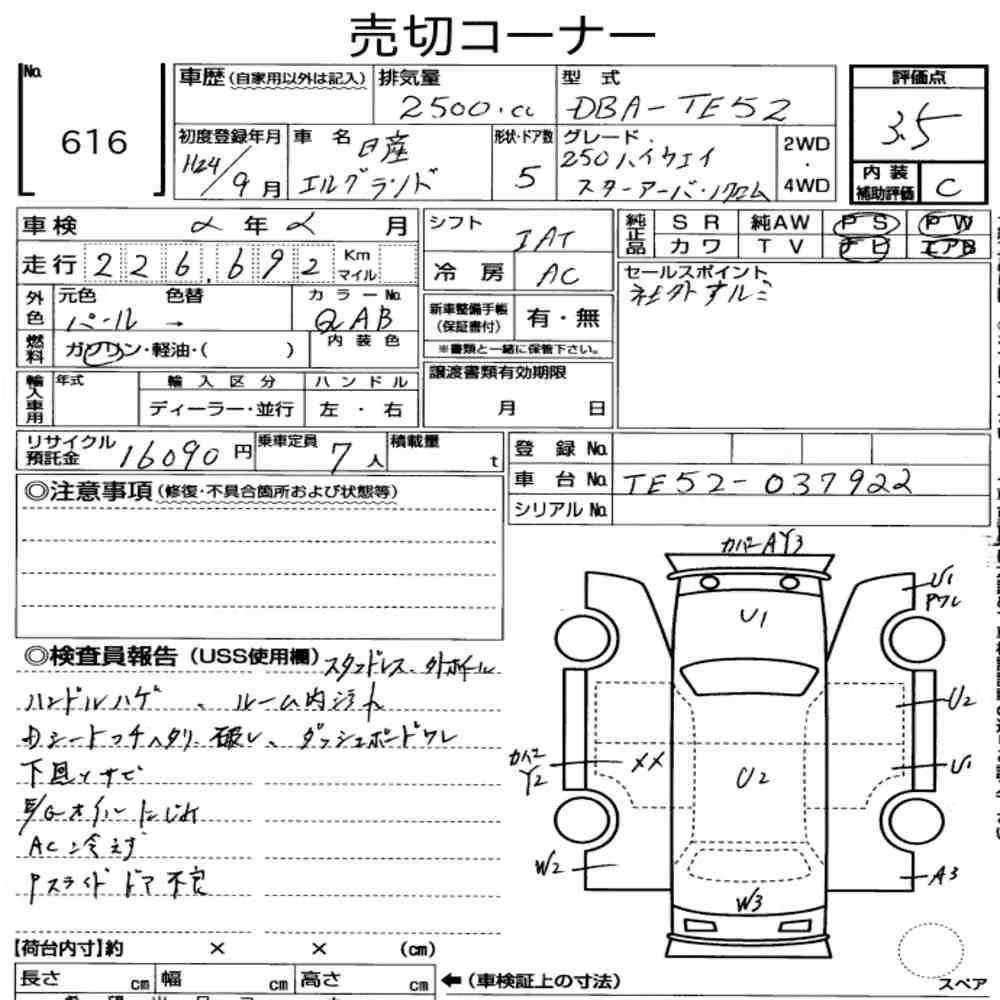 売切コーナー
No. 616
車歴(自家用以外は記入) 排気量 2500.cc 型式 DBA-TE52 評価点 3.5
初度登録年月 H24/9月 車名 日産 エルグランド 形状・ドア数 5 グレード 250ハイウェイ スターアーバンクロム 2WD・4WD 内装補助評価 C
車検 年 月
シフト IAT
純正品 SR 純AW PS PW
カワ TV ナビ エアB
走行 226,692 Km マイル
冷房 AC
セールスポイント
社外アルミ
外色 元色 パール → 色替 カラーNo. QAB
新車整備手帳(保証書付) 有・無
※書類と一緒に保管下さい。
燃料 ガソリン・軽油・( ) 内装色
譲渡書類有効期限
月 日
輸入車用 年式 輸入区分 ハンドル
ディーラー・並行 左・右
リサイクル預託金 16090円 乗車定員 7人 積載量 t
登録No.
車台No. TE52-037922
シリアルNo.
◎注意事項(修復・不具合箇所および状態等)
◎検査員報告(USS使用欄) スタッドレス、外ホイール
ハンドルハゲ、ルーム内汚れ
Dシートコゲ ヘタリ 破レ、ダッシュボードワレ
下回りサビ
E/Gオイルにじみ
AC冷えず
Pスライドドア不良
カバーAY3
U1
U1
Pワレ
U2
カバーY2
XX
U2
U1
W2
W3
A3
【荷台内寸】約 × × (cm)
長さ cm 幅 cm 高さ cm ←(車検証上の寸法)
スペア